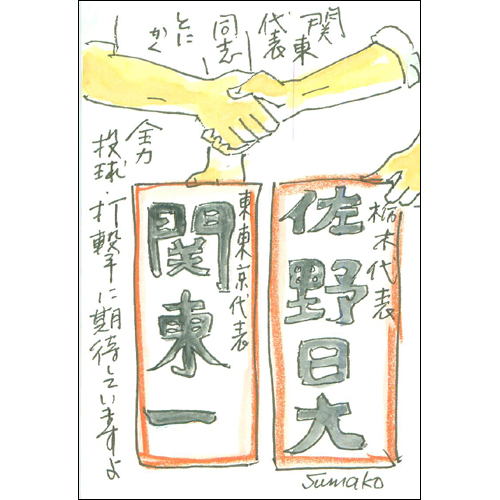 関東
代表
同志
とに
かく
全力
投球・打撃に期待していますよ
栃木代表
佐野日大
東東京代表
関東一
Sumako